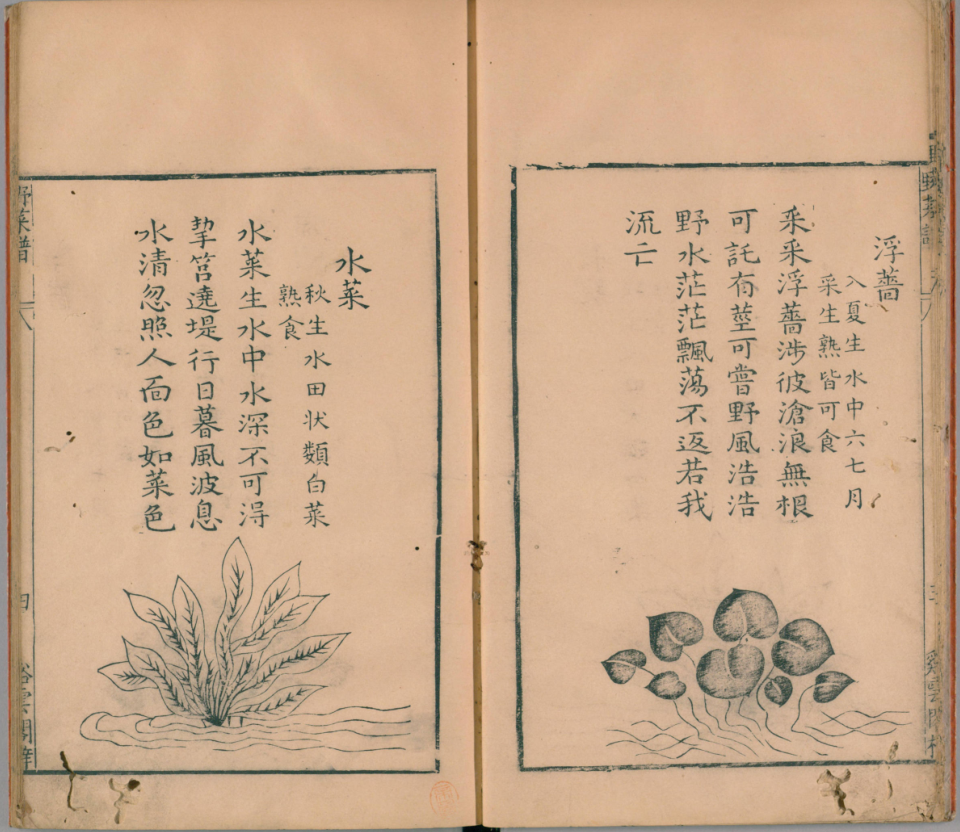 浮薔
入夏生水中六七月
采生熟皆可食
采采浮薔涉彼滄浪無根
可託有莖可嘗野風浩浩
野水茫茫飄蕩不返若我
流亡
水菜
秋生水田状類白菜
熟食
水菜生水中水深不可淂
挈筥遶堤行日暮風波息
水清忽照人面色如菜色
野菜譜
四